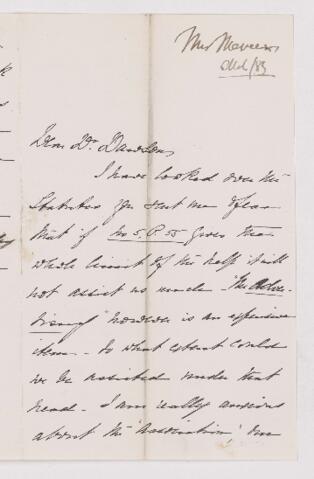 Dear Dr. Dawson,
I have looked over the
Statutes you sent me & fear
that if No 5, P. 55 gives the
whole limit of the help it will
not assist us much. "The Adver-
tising" however is an expensive
item. To what extent could
we be assisted under that
head. I am really anxious
about the "Association", our